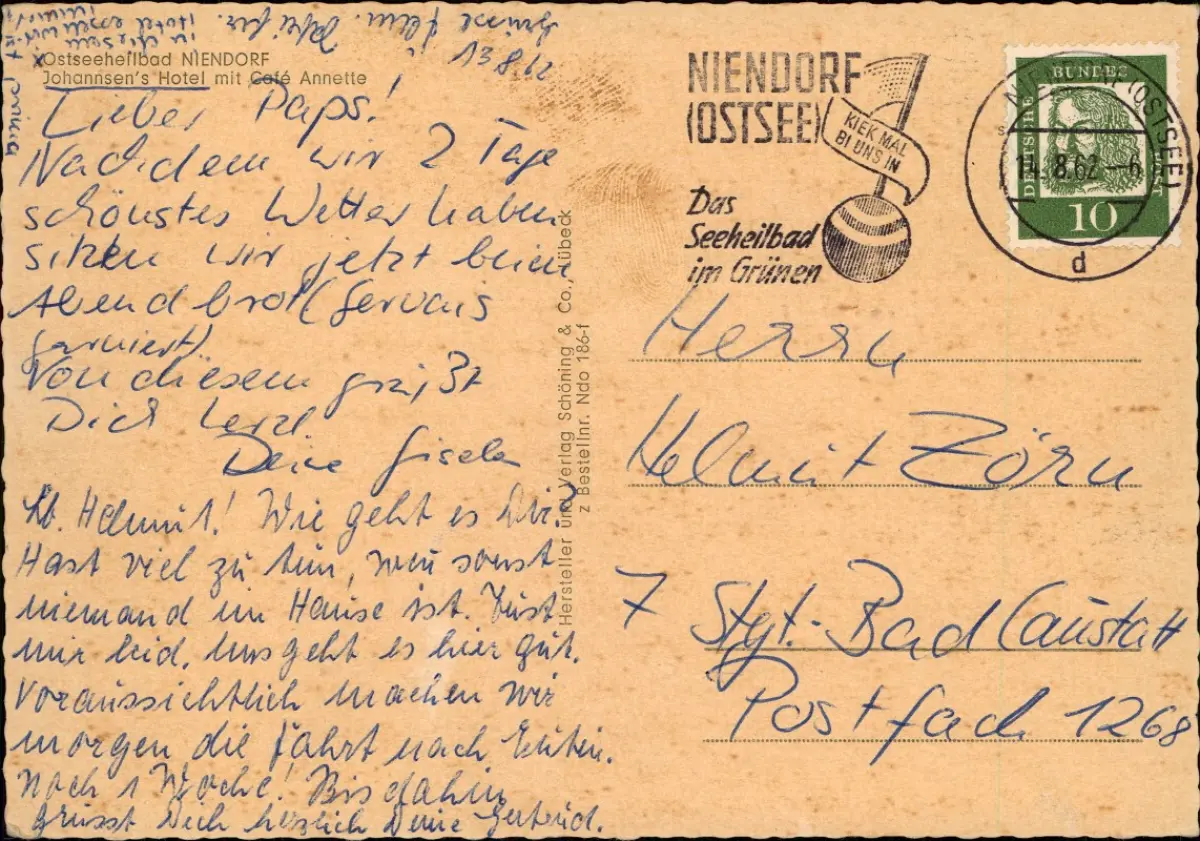 Ostseeheilbad NIENDORF
Johannsen's Hotel mit Café Annette
13.8.62
x in diesem
Hotel essen wir
prima
Lieber Paps!
Nachdem wir 2 Tage
schönstes Wetter haben
sitzen wir jetzt beim
Abendbrot (Gervais
garniert)
Von diesem grüßt
Dich herzl
Deine Gisela
Lb. Helmut! Wie geht es Dir?
Hast viel zu tun, wenn sonst
niemand im Hause ist. Tust
mir leid. Uns geht es hier gut.
Voraussichtlich machen wir
morgen die Fahrt nach Eutin.
Noch 1 Woche! Bis dahin
grüsst Dich herzlich Deine Gertrud.
Hersteller und Verlag Schöning & Co., Lübeck
z Bestellnr. Ndo 186-f
NIENDORF
(OSTSEE)
KIEK MAL
BI UNS IN
Das
Seeheilbad
im Grünen
NIENDORF (OSTSEE)
14.8.62.-6
d
DEUTSCHE BUNDESPOST
10
Herrn
Helmut Zörn
7 Stgt.-Bad Cannstatt
Postfach 1268